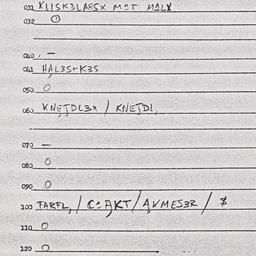 031 KLISK3LAESX M2T M2LX
032 O
040 . –
041 HAL3S+K3S
050 O
060 KNETDL3X / KNETDL,
070 –
080 O
090 O
100 FARFL, / C2AKT / AVMES3R / $
110 O
120 O